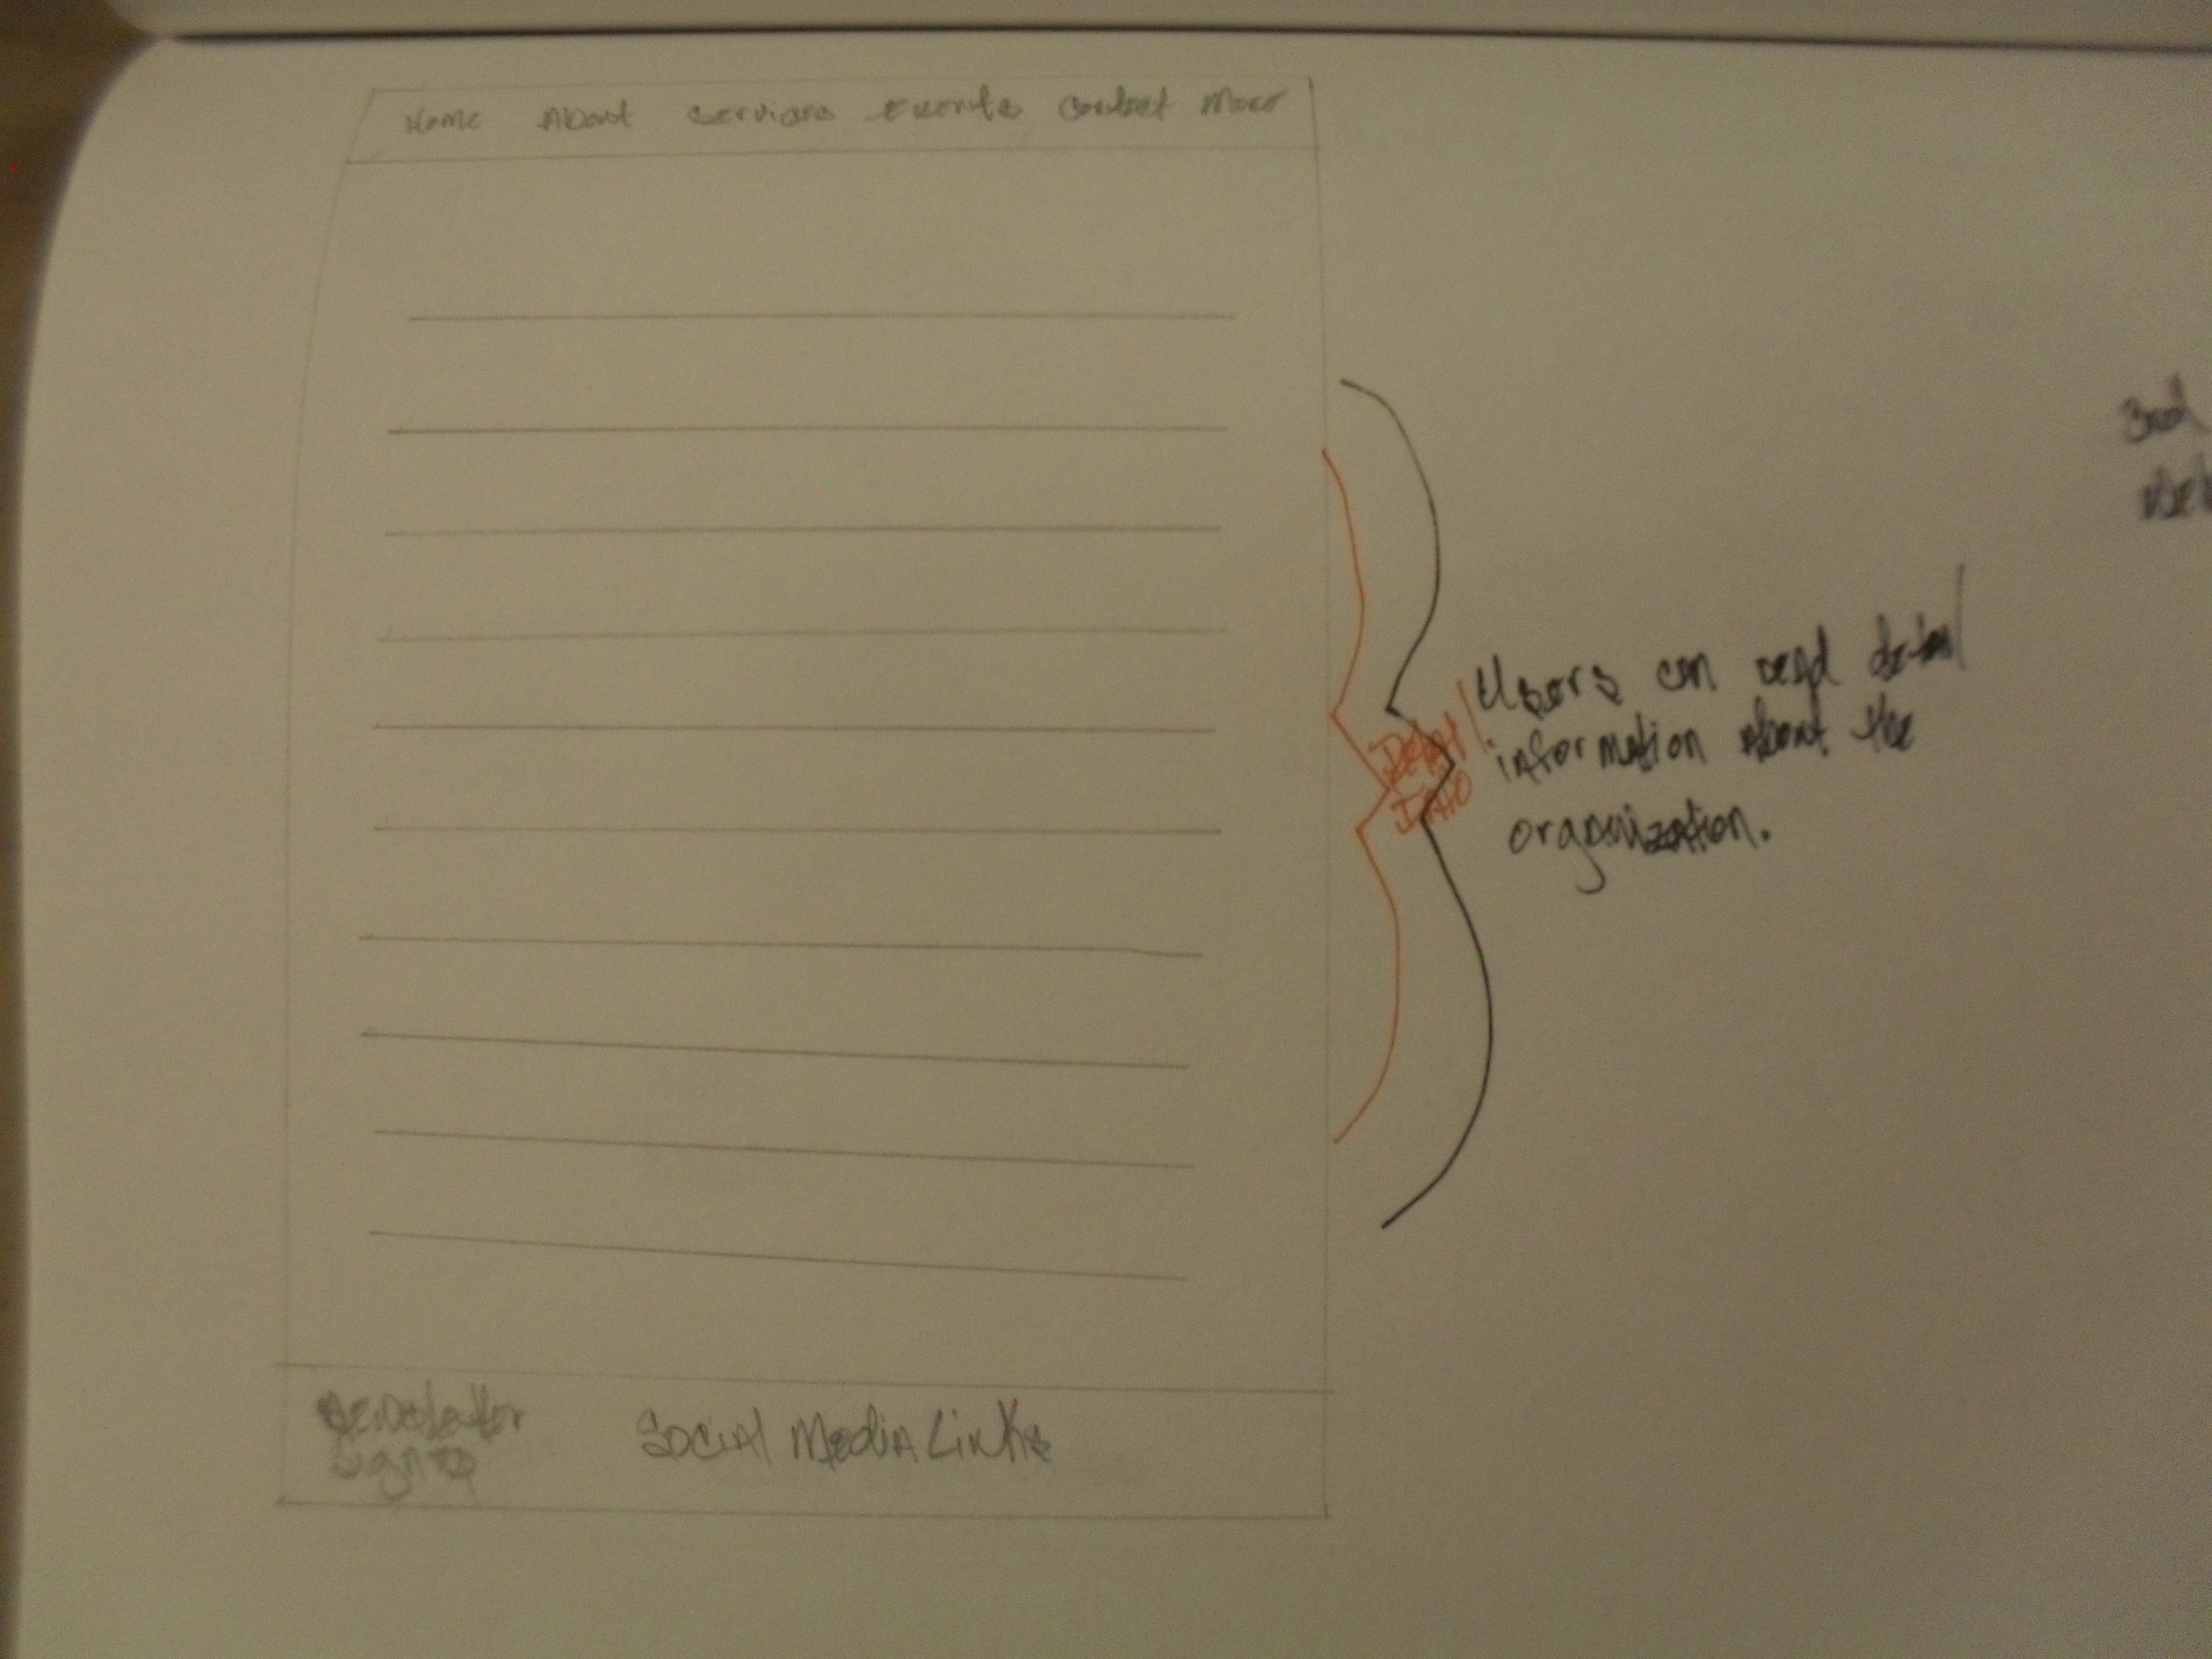 Home About Services Events Contact More
Users can read detail
information about the
organization.
Detail
Info
Newsletter
Sign Up
Social Media Links